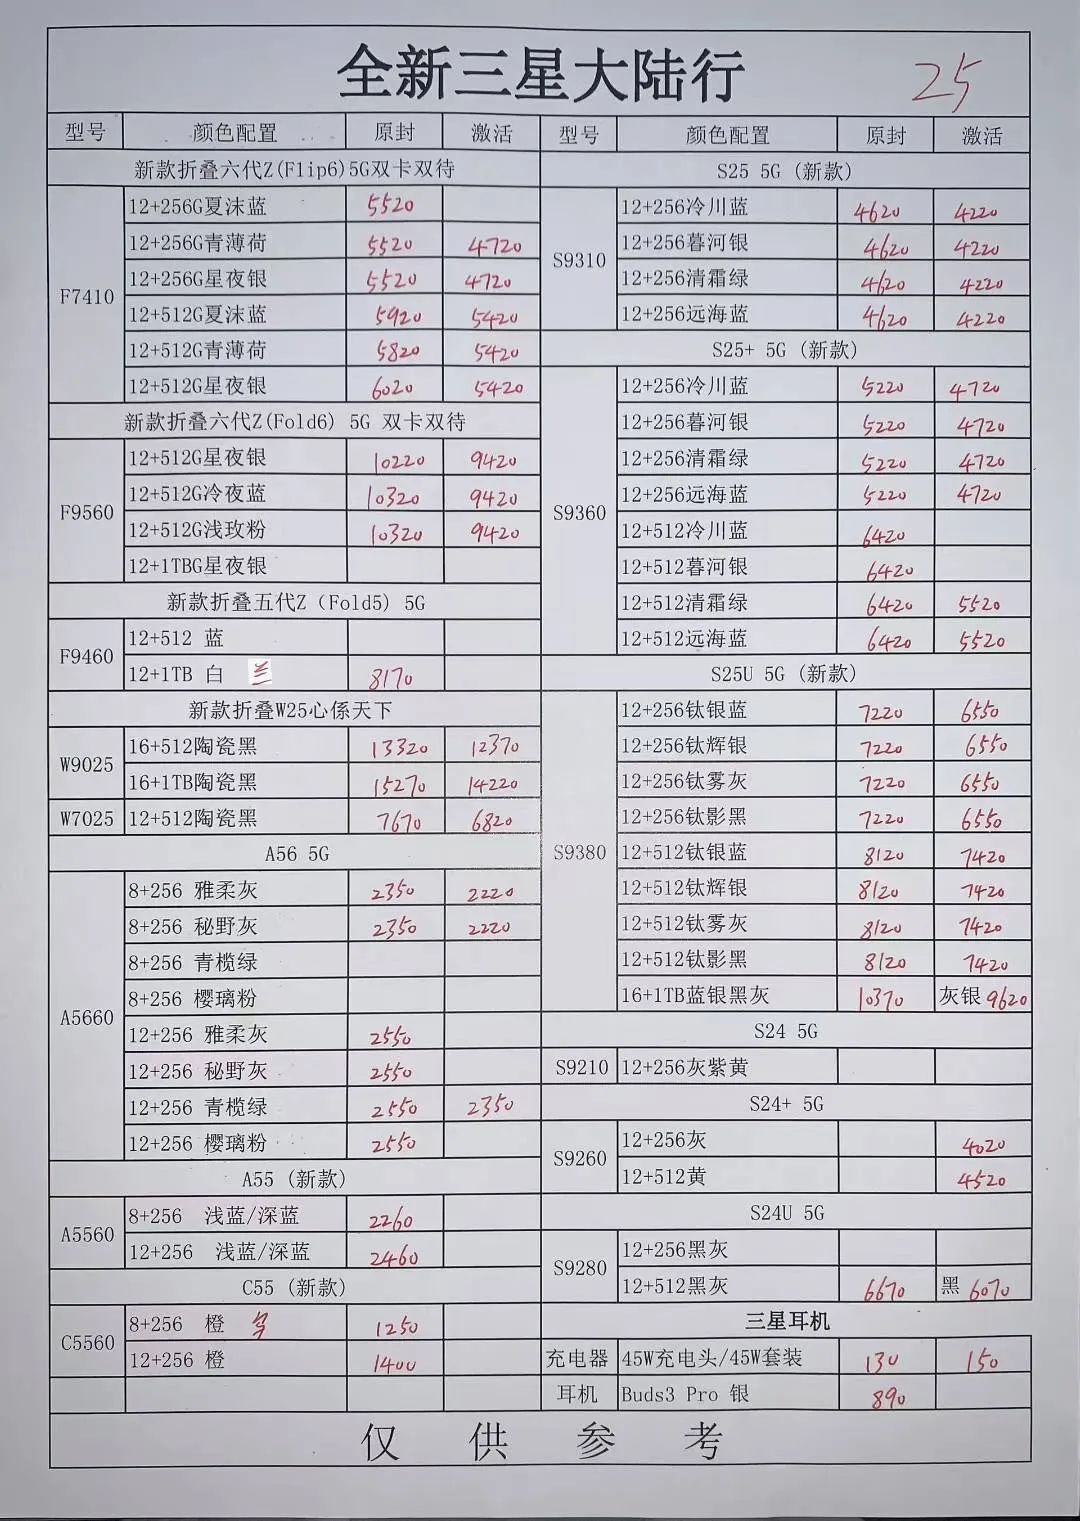 全新三星大陆行 25
型号 颜色配置 原封 激活
新款折叠六代Z(Flip6)5G双卡双待
F7410
12+256G夏沫蓝 5520
12+256G青薄荷 5520 4720
12+256G星夜银 5520 4720
12+512G夏沫蓝 5920 5420
12+512G青薄荷 5820 5420
12+512G星夜银 6020 5420
新款折叠六代Z(Fold6) 5G 双卡双待
F9560
12+512G星夜银 10220 9420
12+512G冷夜蓝 10320 9420
12+512G浅玫粉 10320 9420
12+1TBG星夜银
新款折叠五代Z（Fold5) 5G
F9460
12+512 蓝
12+1TB 白 兰 8170
新款折叠W25心係天下
W9025
16+512陶瓷黑 13320 12370
16+1TB陶瓷黑 15270 14220
W7025 12+512陶瓷黑 7670 6820
A56 5G
A5660
8+256 雅柔灰 2350 2220
8+256 秘野灰 2350 2220
8+256 青榄绿
8+256 樱璃粉
12+256 雅柔灰 2550
12+256 秘野灰 2550
12+256 青榄绿 2550 2350
12+256 樱璃粉 2550
A55 (新款)
A5560
8+256 浅蓝/深蓝 2260
12+256 浅蓝/深蓝 2460
C55 (新款)
C5560
8+256 橙 1250
12+256 橙 1400
型号 颜色配置 原封 激活
S25 5G (新款)
S9310
12+256冷川蓝 4620 4220
12+256暮河银 4620 4220
12+256清霜绿 4620 4220
12+256远海蓝 4620 4220
S25+ 5G (新款)
S9360
12+256冷川蓝 5220 4720
12+256暮河银 5220 4720
12+256清霜绿 5220 4720
12+256远海蓝 5220 4720
12+512冷川蓝 6420
12+512暮河银 6420
12+512清霜绿 6420 5520
12+512远海蓝 6420 5520
S25U 5G (新款)
S9380
12+256钛银蓝 7220 6550
12+256钛辉银 7220 6550
12+256钛雾灰 7220 6550
12+256钛影黑 7220 6550
12+512钛银蓝 8120 7420
12+512钛辉银 8120 7420
12+512钛雾灰 8120 7420
12+512钛影黑 8120 7420
16+1TB蓝银黑灰 10370 灰银 9620
S24 5G
S9210 12+256灰紫黄
S24+ 5G
S9260
12+256灰 4020
12+512黄 4520
S24U 5G
S9280
12+256黑灰
12+512黑灰 6670 黑 6070
三星耳机
充电器 45W充电头/45W套装 130 150
耳机 Buds3 Pro 银 890
仅供参考